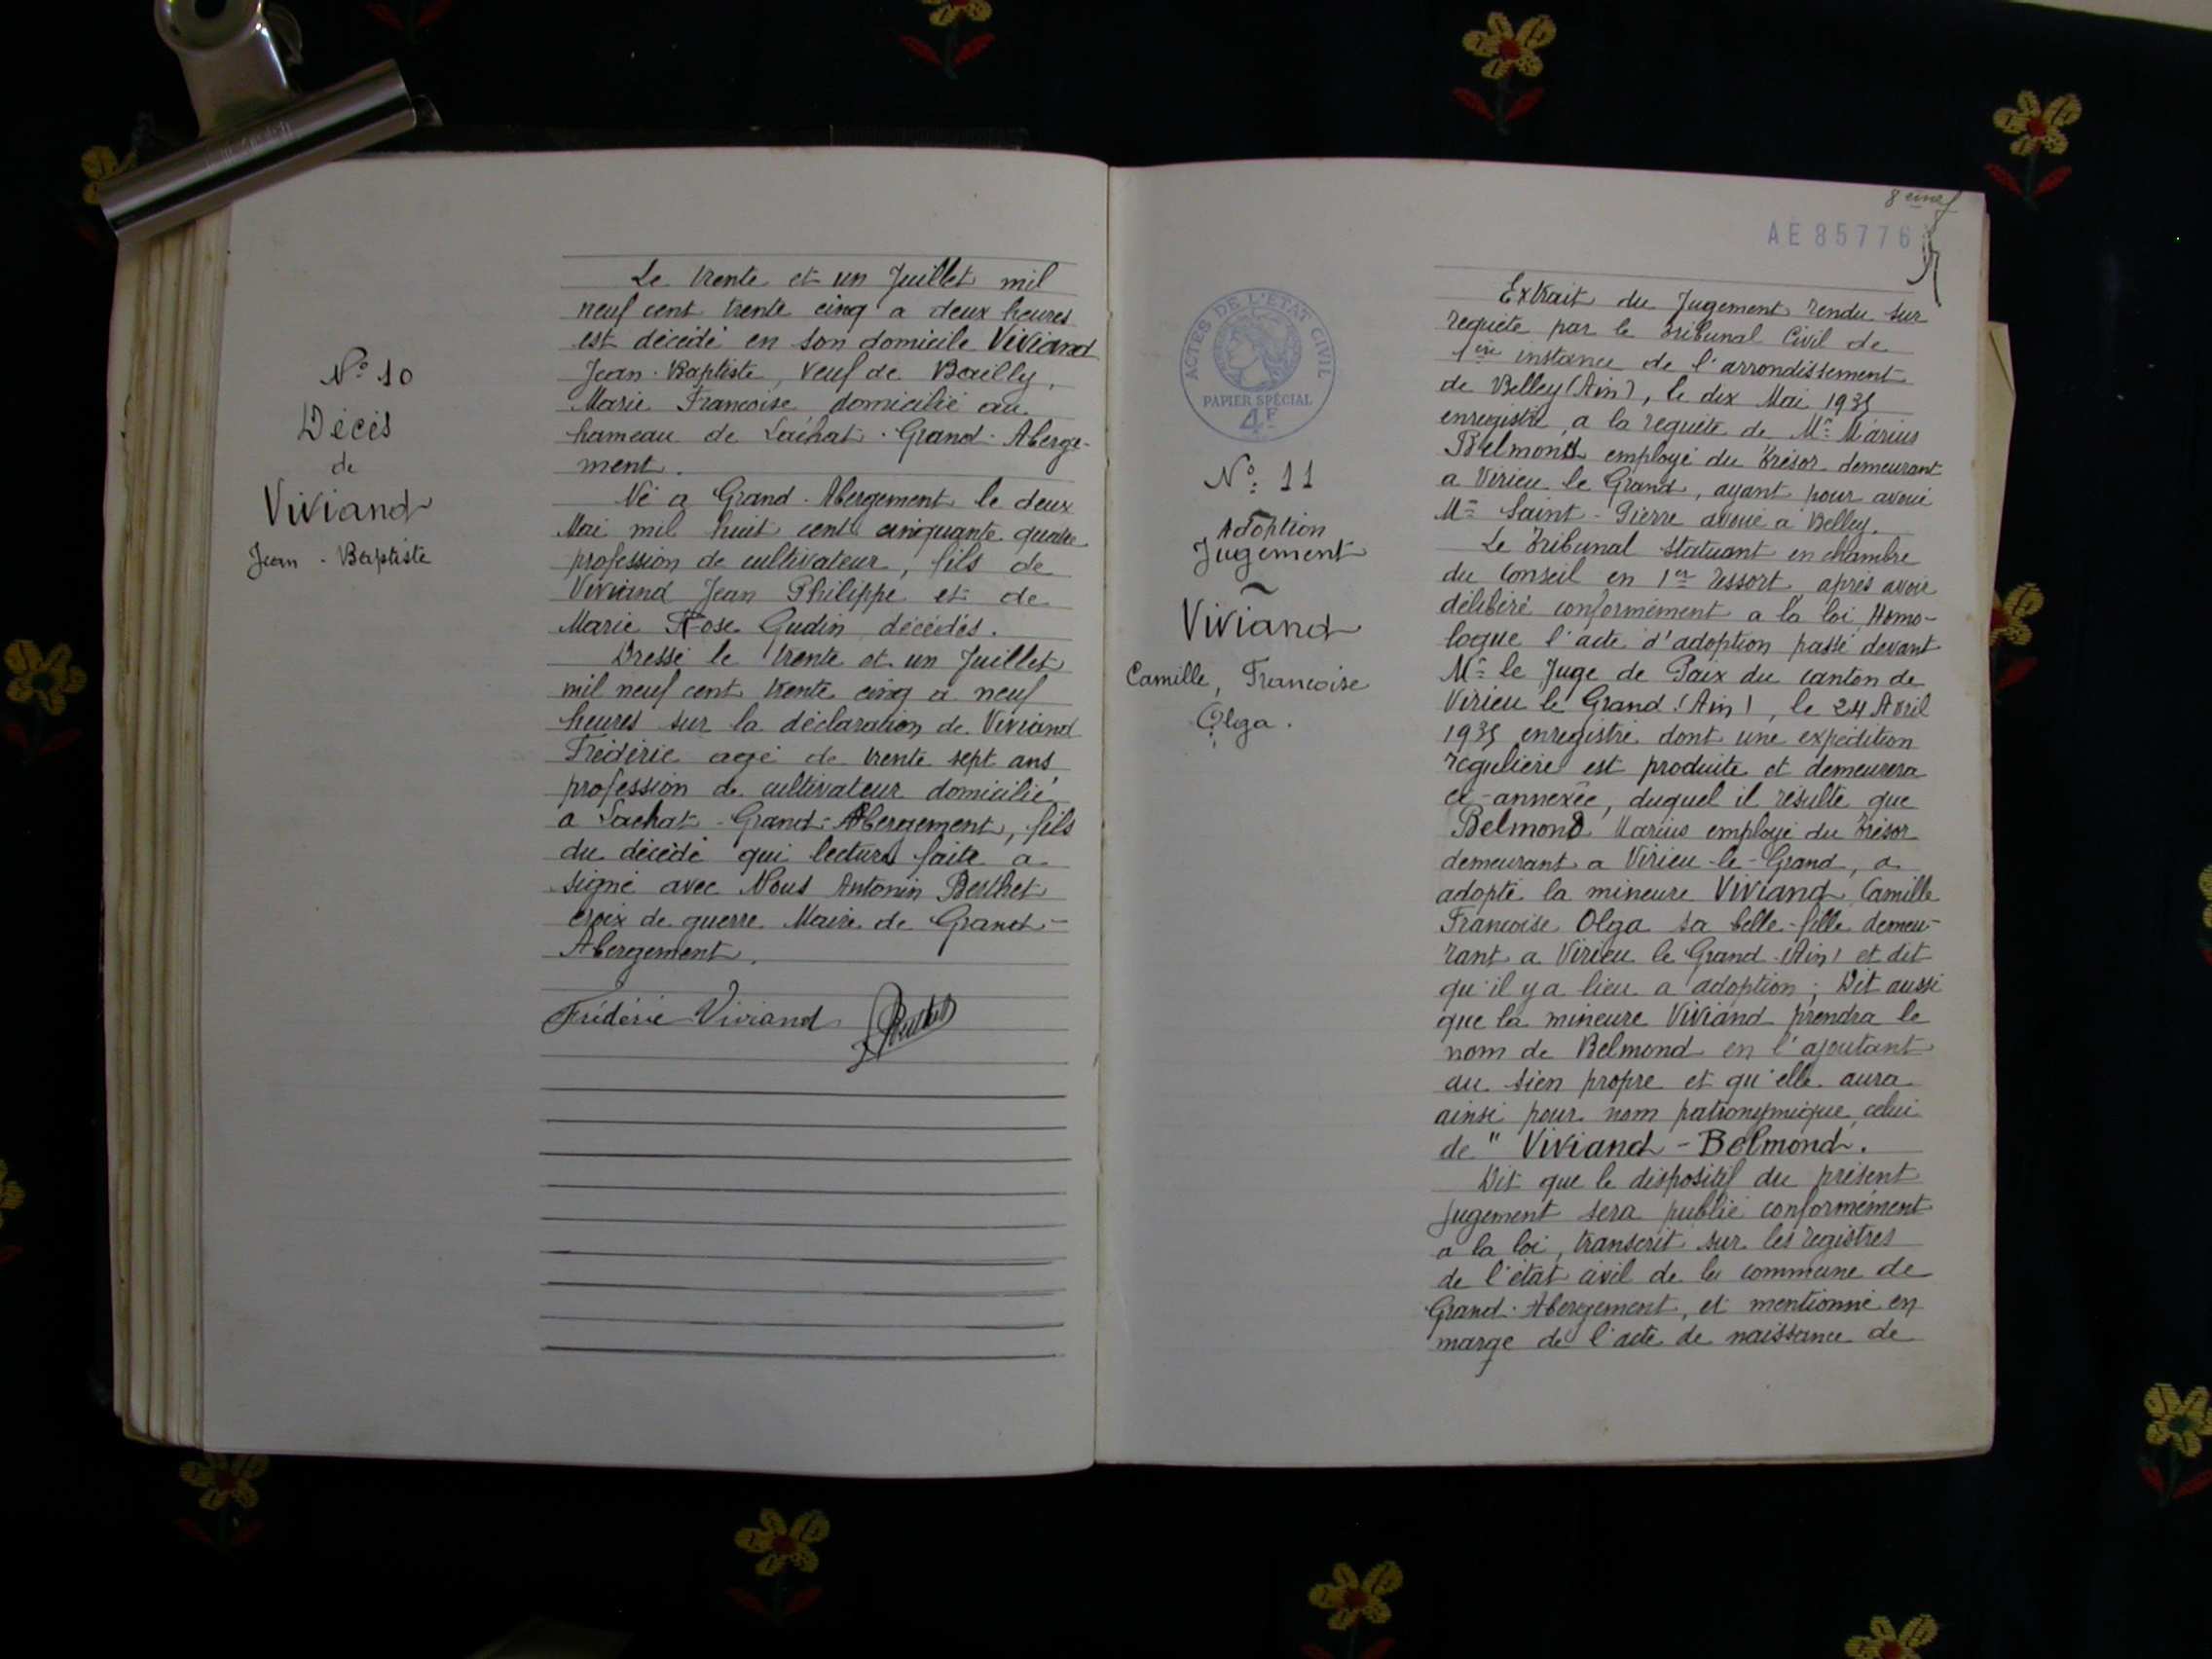 N° 10
Décès
de
Viviand
Jean-Baptiste
Le trente et un Juillet mil
neuf cent trente cinq a deux heures
est décédé en son domicile Viviand
Jean-Baptiste, veuf de Bailly,
Marie Francoise domicilié au
hameau de Lachat-Grand-Aberge-
ment.
Né a Grand-Abergement le deux
Mai mil huit cent cinquante quatre
profession de cultivateur, fils de
Viviand Jean Philippe et de
Marie Rose Gudin décédés.
Dressé le trente et un Juillet
mil neuf cent trente cinq a neuf
heures sur la déclaration de Viviand
Frédéric agé de trente sept ans
profession de cultivateur domicilié
a Lachat-Grand-Abergement, fils
du décédé qui lecture faite a
signé avec Nous Antonin Berthet
croix de guerre Maire de Grand-
Abergement.
Frédéric Viviand Berthet
AE 85776
ACTES DE L'ÉTAT CIVIL
PAPIER SPÉCIAL
4F
N°: 11
Adoption
Jugement
Viviand
Camille, Francoise
Olga.
Extrait du Jugement rendu sur
requête par le Tribunal Civil de
1ère instance de l'arrondissement
de Belley (Ain), le dix Mai 1935
enregistré, a la requête de Mr Marius
Belmond employé du Trésor demeurant
a Virieu le Grand, ayant pour avoué
Me Saint-Pierre avoué a Belley.
Le Tribunal statuant en chambre
du Conseil en 1er ressort, après avoir
délibéré conformément a la loi, Homo-
logue l'acte d'adoption passé devant
Mr le Juge de Paix du canton de
Virieu le Grand (Ain), le 24 Avril
1935 enregistré dont une expédition
régulière est produite et demeurera
ci-annexée, duquel il résulte que
Belmond Marius employé du Trésor
demeurant a Virieu-le-Grand, a
adopté la mineure Viviand Camille
Francoise Olga sa belle-fille demeu-
rant a Virieu le Grand (Ain) et dit
qu'il y a lieu a adoption; Dit aussi
que la mineure Viviand prendra le
nom de Belmond en l'ajoutant
au sien propre et qu'elle aura
ainsi pour nom patronymique celui
de "Viviand-Belmond.
Dit que le dispositif du présent
jugement sera publié conformément
a la loi, transcrit sur les registres
de l'état civil de la commune de
Grand-Abergement, et mentionné en
marge de l'acte de naissance de